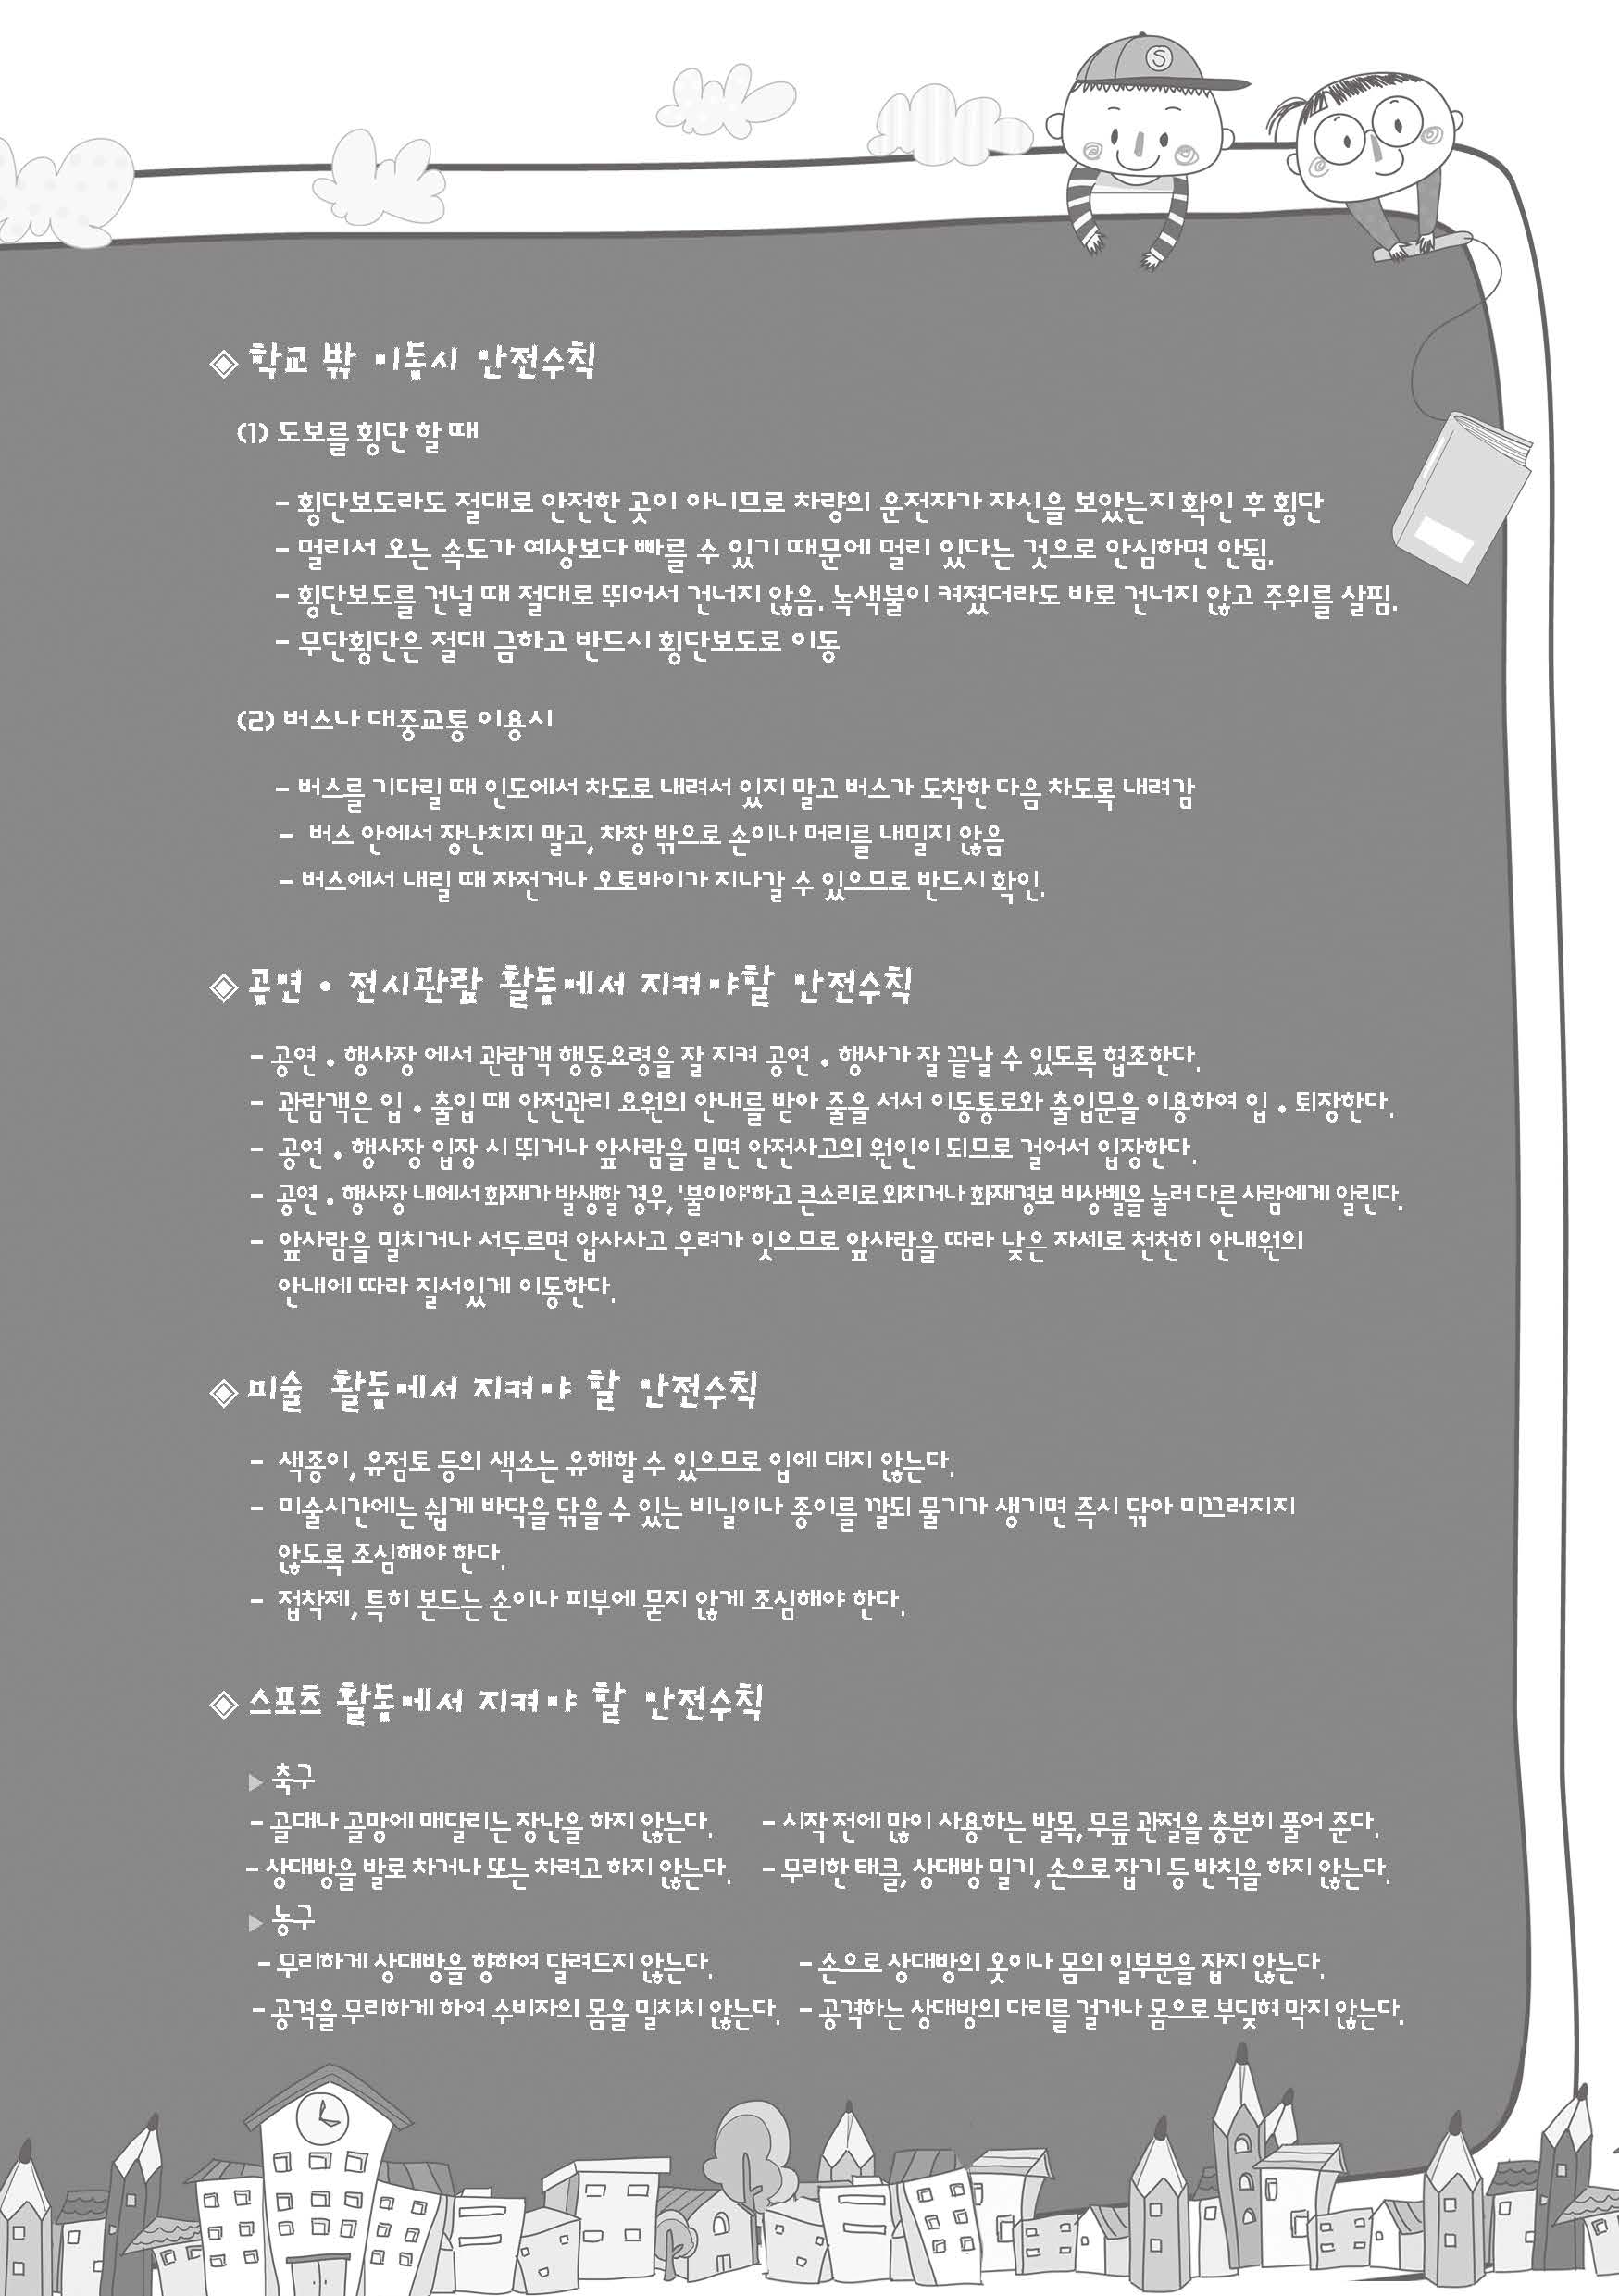 ◈ 학교 밖 이동시 안전수칙
(1) 도보를 횡단 할 때
- 횡단보도라도 절대로 안전한 곳이 아니므로 차량의 운전자가 자신을 보았는지 확인 후 횡단
- 멀리서 오는 속도가 예상보다 빠를 수 있기 때문에 멀리 있다는 것으로 안심하면 안됨.
- 횡단보도를 건널 때 절대로 뛰어서 건너지 않음. 녹색불이 켜졌더라도 바로 건너지 않고 주위를 살핌.
- 무단횡단은 절대 금하고 반드시 횡단보도로 이동
(2) 버스나 대중교통 이용시
- 버스를 기다릴 때 인도에서 차도로 내려서 있지 말고 버스가 도착한 다음 차도록 내려감
- 버스 안에서 장난치지 말고, 차창 밖으로 손이나 머리를 내밀지 않음
- 버스에서 내릴 때 자전거나 오토바이가 지나갈 수 있으므로 반드시 확인.
◈ 공연 • 전시관람 활동에서 지켜야할 안전수칙
- 공연 • 행사장 에서 관람객 행동요령을 잘 지켜 공연 • 행사가 잘 끝날 수 있도록 협조한다.
- 관람객은 입 • 출입 때 안전관리 요원의 안내를 받아 줄을 서서 이동통로와 출입문을 이용하여 입 • 퇴장한다.
- 공연 • 행사장 입장 시 뛰거나 앞사람을 밀면 안전사고의 원인이 되므로 걸어서 입장한다.
- 공연 • 행사장 내에서 화재가 발생할 경우, '불이야'하고 큰소리로 외치거나 화재경보 비상벨을 눌러 다른 사람에게 알린다.
- 앞사람을 밀치거나 서두르면 압사사고 우려가 잇으므로 앞사람을 따라 낮은 자세로 천천히 안내원의
안내에 따라 질서있게 이동한다.
◈ 미술 활동에서 지켜야 할 안전수칙
- 색종이, 유점토 등의 색소는 유해할 수 있으므로 입에 대지 않는다.
- 미술시간에는 쉽게 바닥을 닦을 수 있는 비닐이나 종이를 깔되 물기가 생기면 즉시 닦아 미끄러지지
않도록 조심해야 한다.
- 접착제, 특히 본드는 손이나 피부에 묻지 않게 조심해야 한다.
◈ 스포츠 활동에서 지켜야 할 안전수칙
▶ 축구
- 골대나 골망에 매달리는 장난을 하지 않는다. - 시작 전에 많이 사용하는 발목, 무릎 관절을 충분히 풀어 준다.
- 상대방을 발로 차거나 또는 차려고 하지 않는다. - 무리한 태클, 상대방 밀기, 손으로 잡기 등 반칙을 하지 않는다.
▶ 농구
- 무리하게 상대방을 향하여 달려드지 않는다. - 손으로 상대방의 옷이나 몸의 일부분을 잡지 않는다.
- 공격을 무리하게 하여 수비자의 몸을 밀치치 않는다. - 공격하는 상대방의 다리를 걸거나 몸으로 부딪혀 막지 않는다.